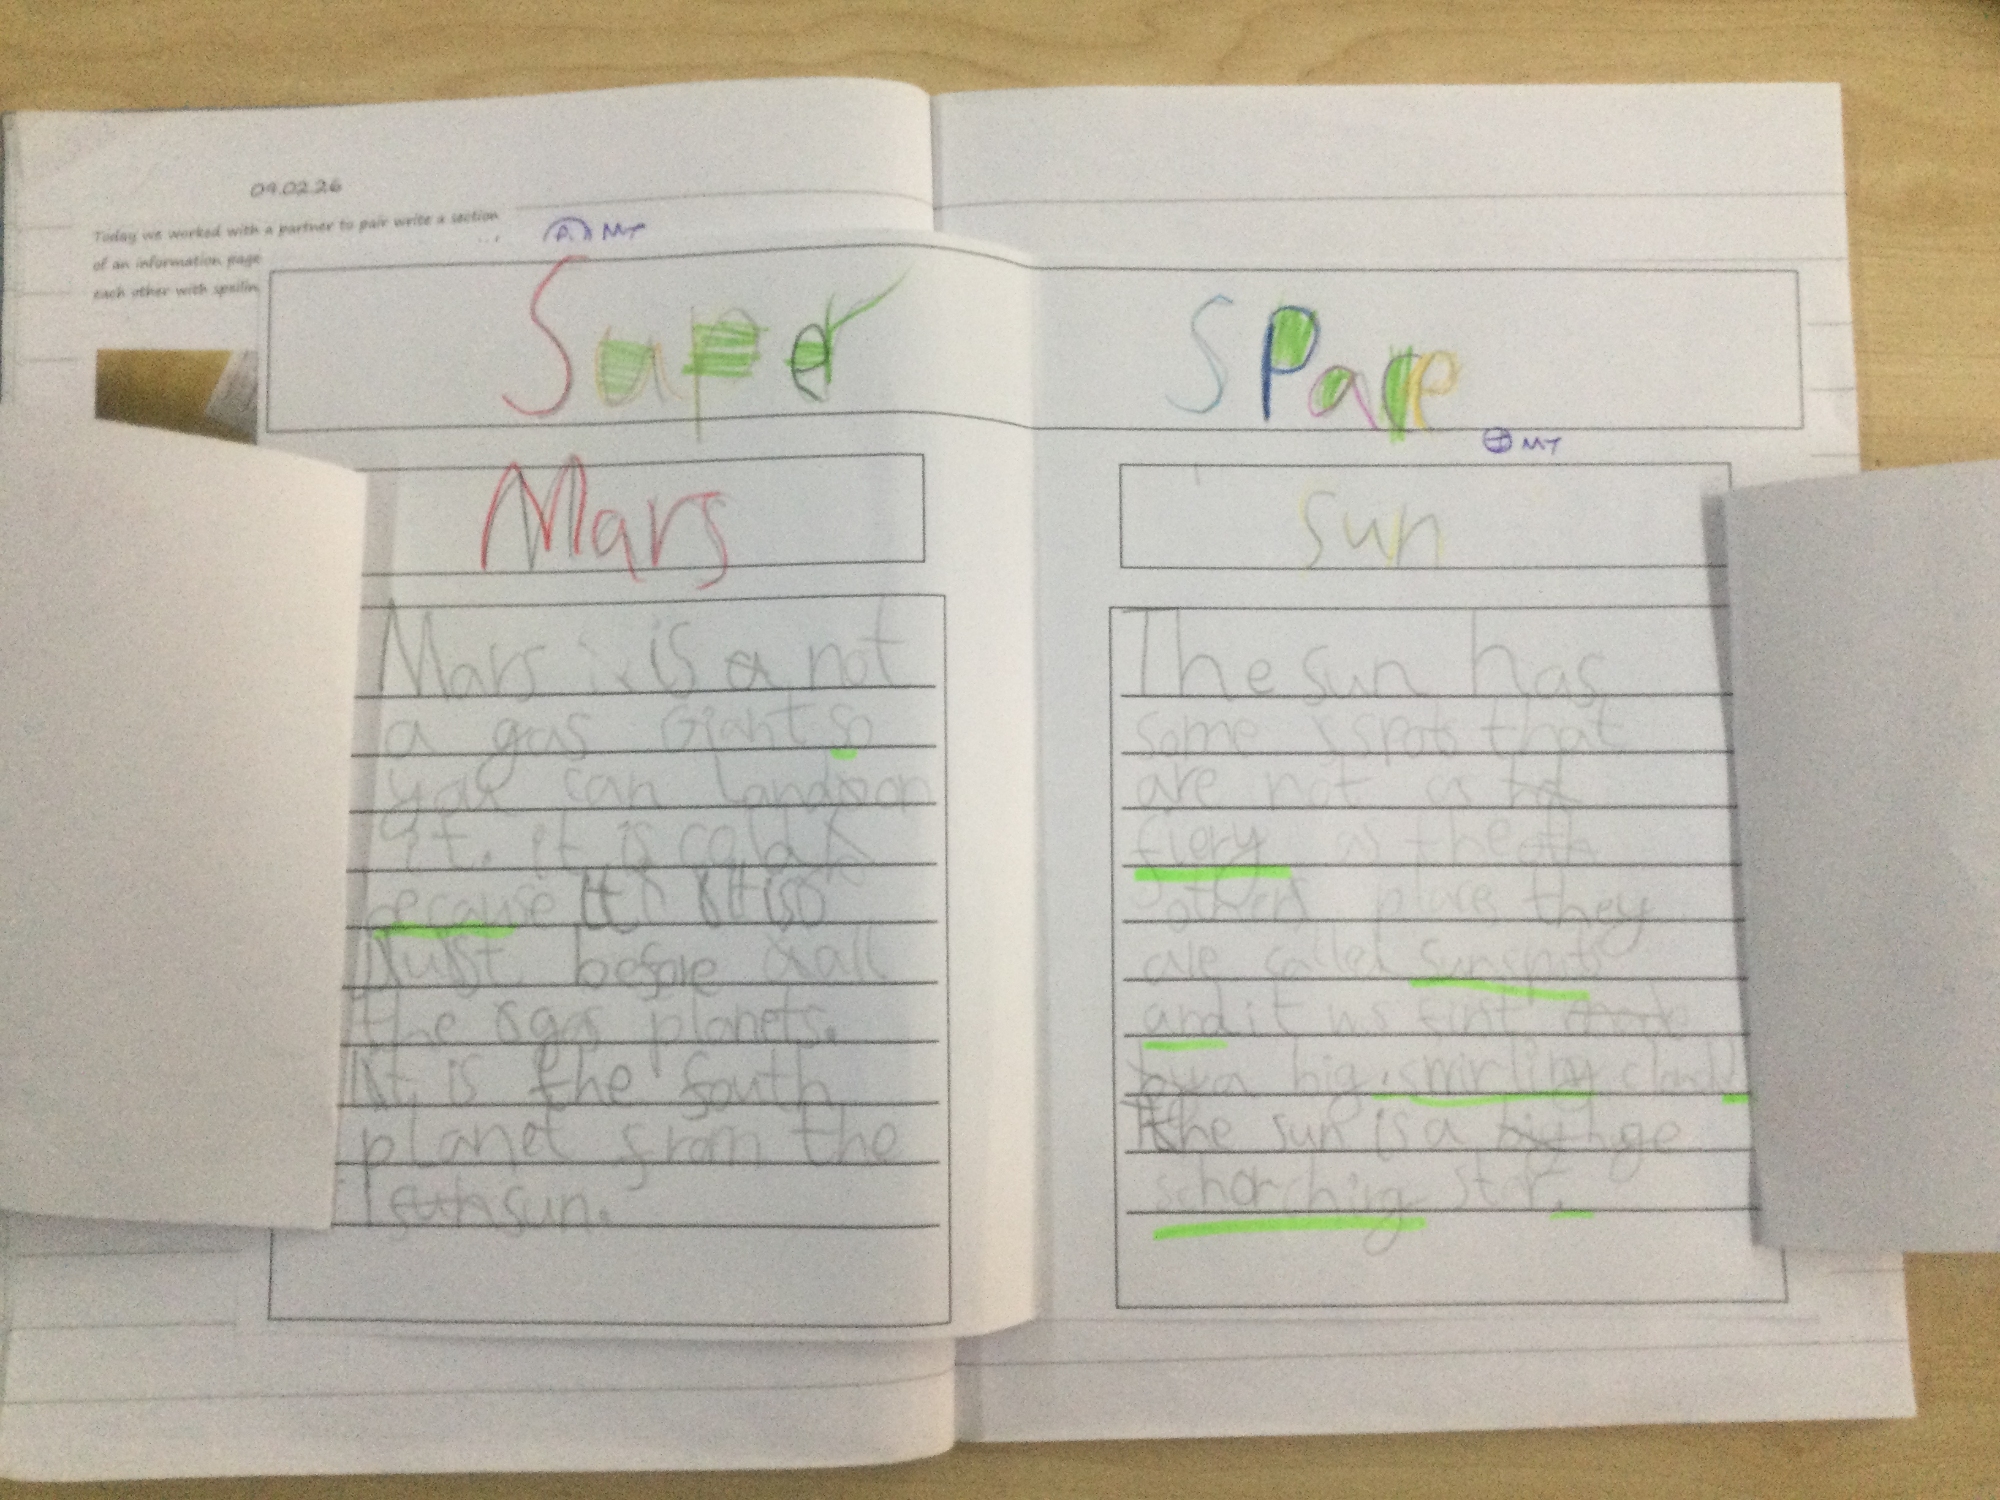 09.02.26
Today we worked with a partner to pair write a section
of an information page
each other with spellin
MT
Super Space
MT
Mars
Mars is a not
a gas Giant so
you can land on
it. it is cold
because It it is
Just before all
the gas planets.
It is the fouth
planet from the
sun.
Sun
The sun has
some spots that
are not as hot
fiery as the oth
others places they
are called sunspots
and it was first made
by a big swirling cloud
the sun is a big huge
schorching star.